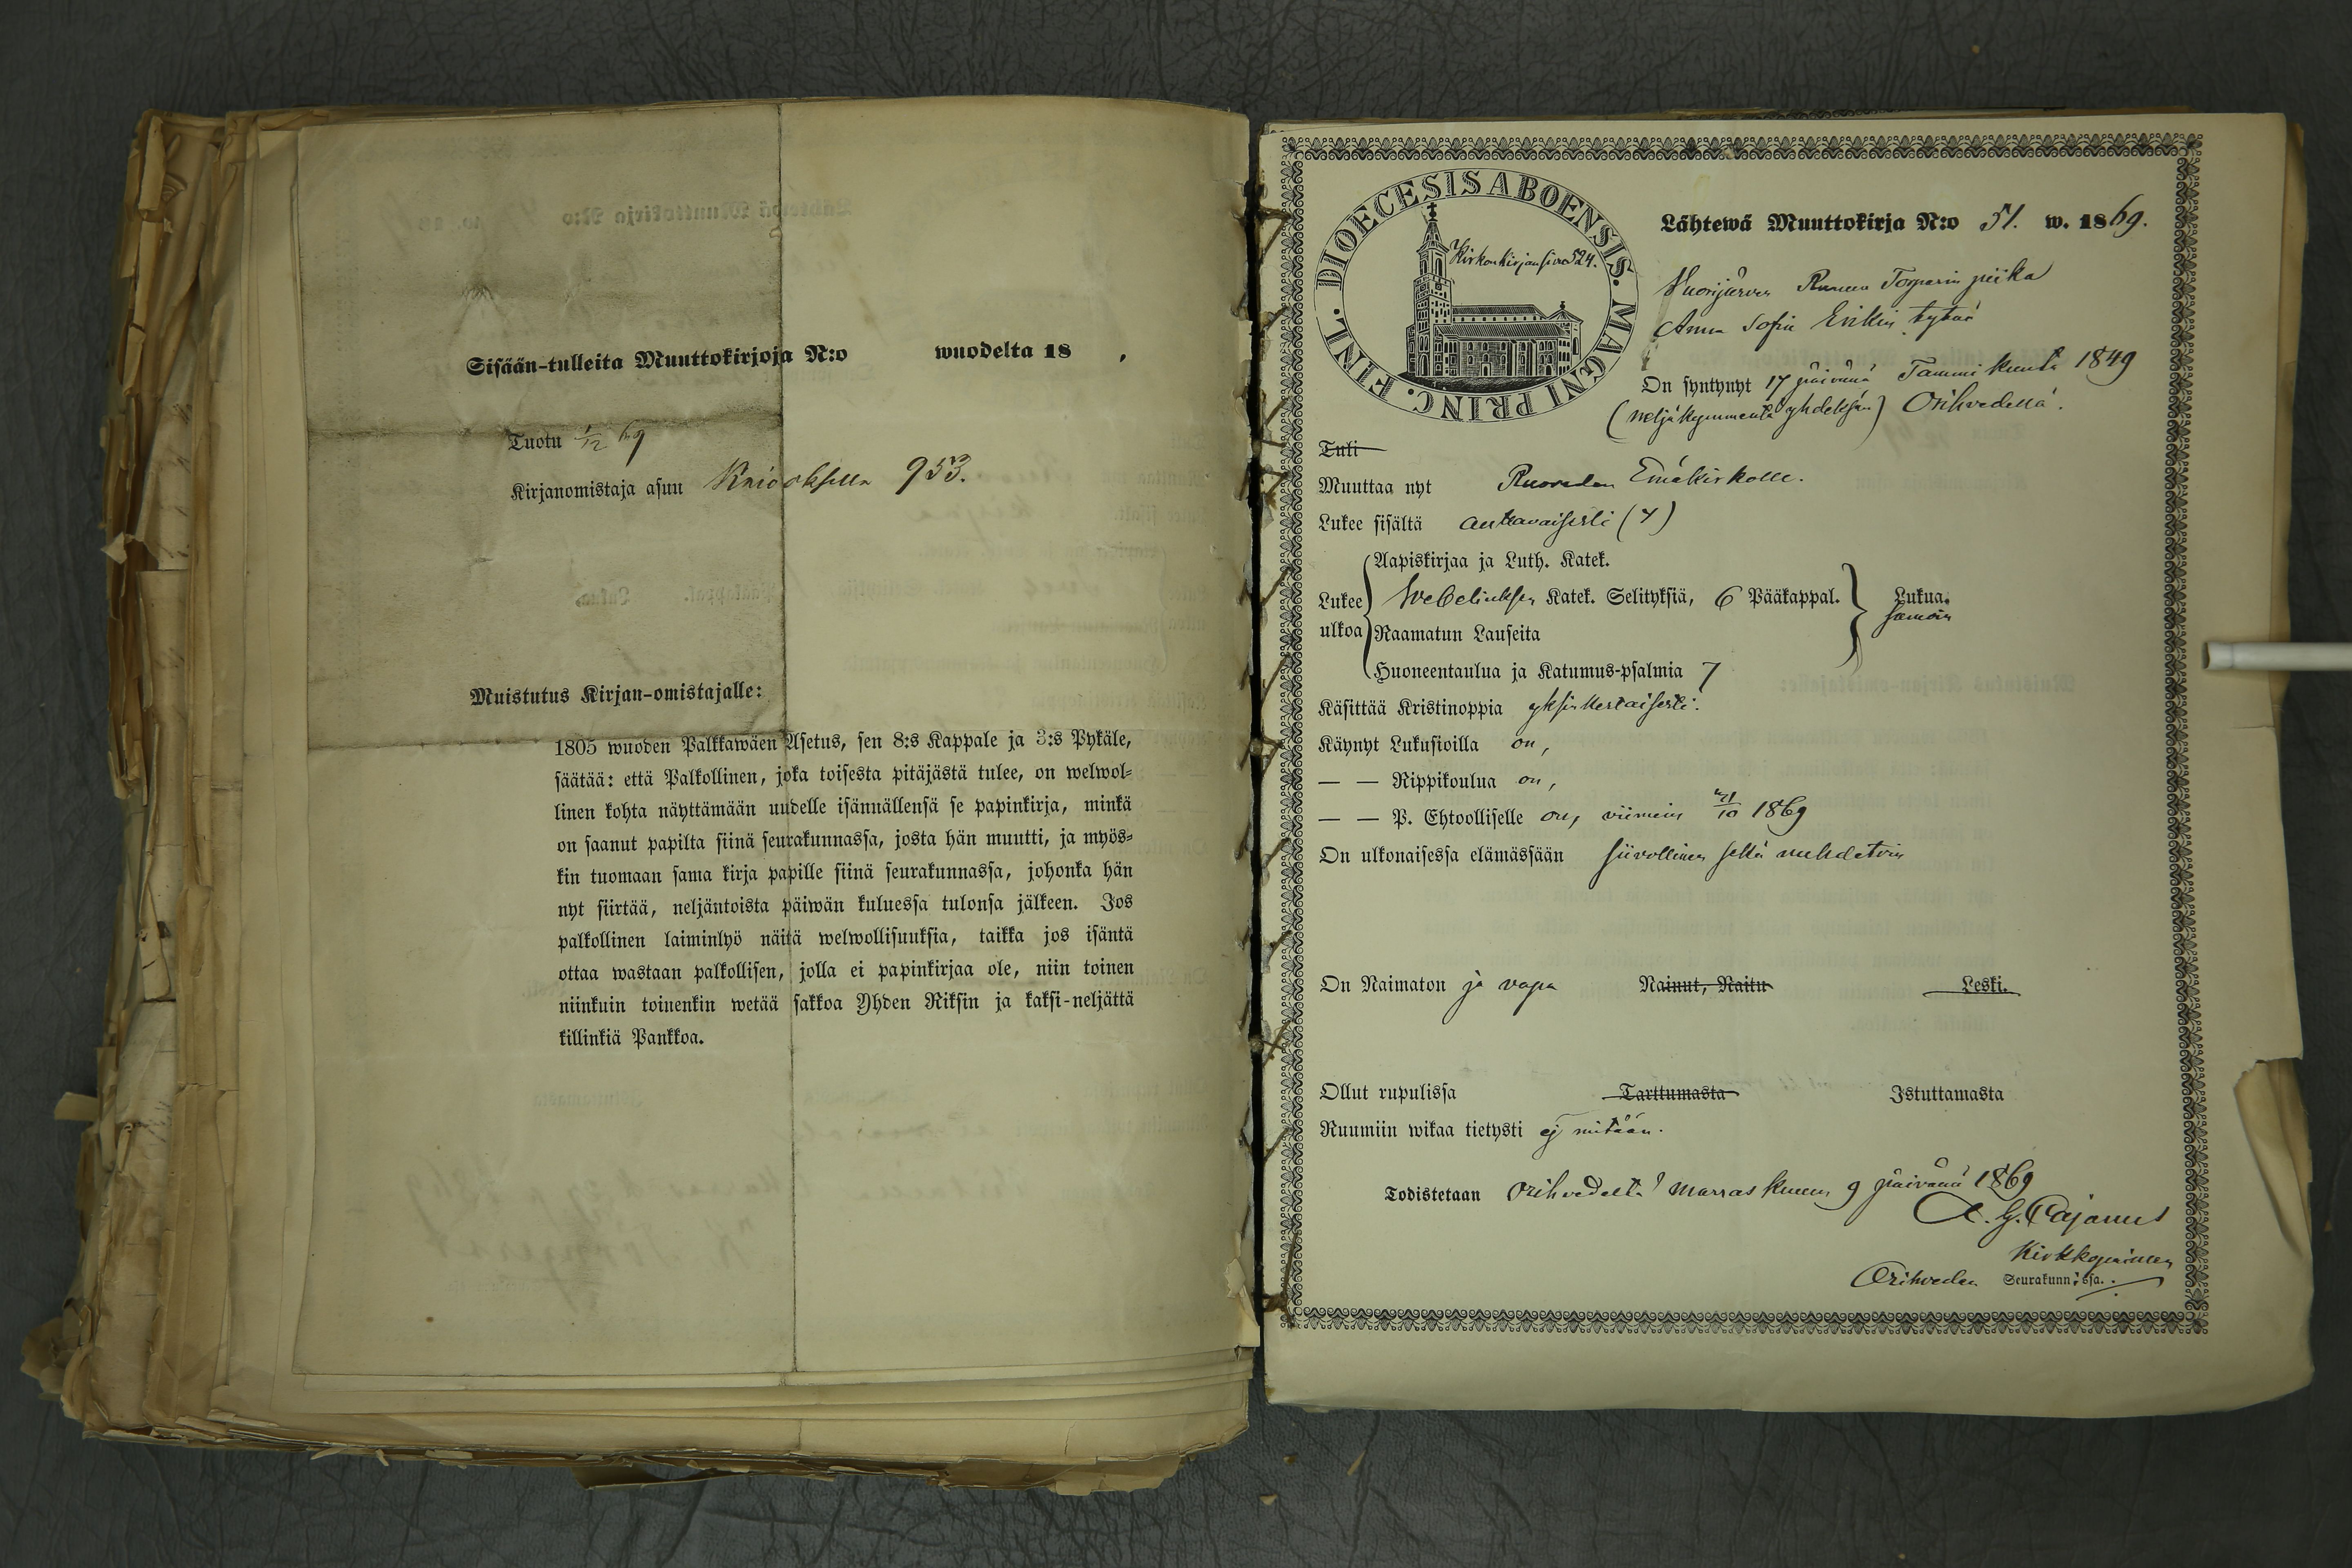 Sisään-tulleita Muuttokirjoja N:o wuodelta 18 ,
Tuotu 1/12 69
Kirjanomistaja asuu 953.
Muistutus Kirjan-omistajalle:
1805 wuoden Palkkawäen Asetus, sen 8:s Kappale ja 3:s Pykäle,
säätää: että Palkollinen, joka toisesta pitäjästä tulee, on welwol-
linen kohta näyttämään uudelle isännällensä se papinkirja, minkä
on saanut papilta siinä seurakunnassa, josta hän muutti, ja myös-
kin tuomaan sama kirja papille siinä seurakunnassa, johonka hän
nyt siirtää, neljäntoista päiwän kuluessa tulonsa jälkeen. Jos
palkollinen laiminlyö näitä welwollisuuksia, taikka jos isäntä
ottaa wastaan palkollisen, jolla ei papinkirjaa ole, niin toinen
niinkuin toinenkin wetää sakkoa Yhden Riksin ja kaksi-neljättä
killinkiä Pankkoa.
DIOECESIS ABOENSIS. MAGNI PRINC. FINL.
Kirkonkirjan siwu 524.
Lähtewä Muuttokirja N:o 51. w. 1869.
Torparin piika
Anna Sofia Erikin tytär
On syntynyt 17 päivänä Tammikuuta 1849
(neljäkymmentä yhdeksän) Orihvedellä.
Tuli
Muuttaa nyt Ruoveden Emäkirkolle.
Lukee sisältä auttavaisesti (4)
Aapiskirjaa ja Luth. Katek.
Lukee ulkoa Svebeliuksen Katek. Selityksiä, 6 Pääkappal. Lukua.
samoin
Raamatun Lauseita
Huoneentaulua ja Katumus-psalmia 7
Käsittää Kristinoppia yksinkertaisesti.
Käynyt Lukusioilla on,
— — Rippikoulua on,
— — P. Ehtoolliselle on, viimein /10 1869
On ulkonaisessa elämässään siivollinen sekä nuhdetoin
On Naimaton ja vapa Nainut, Naitu Leski.
Ollut rupulissa Tarttumasta Istuttamasta
Ruumiin wikaa tietysti ej mitään.
Todistetaan Orihvedeltä Marraskuun 9 päivänä 1869
A. G. Cajanus
Kirkkoherra
Orihveden Seurakunnissa.